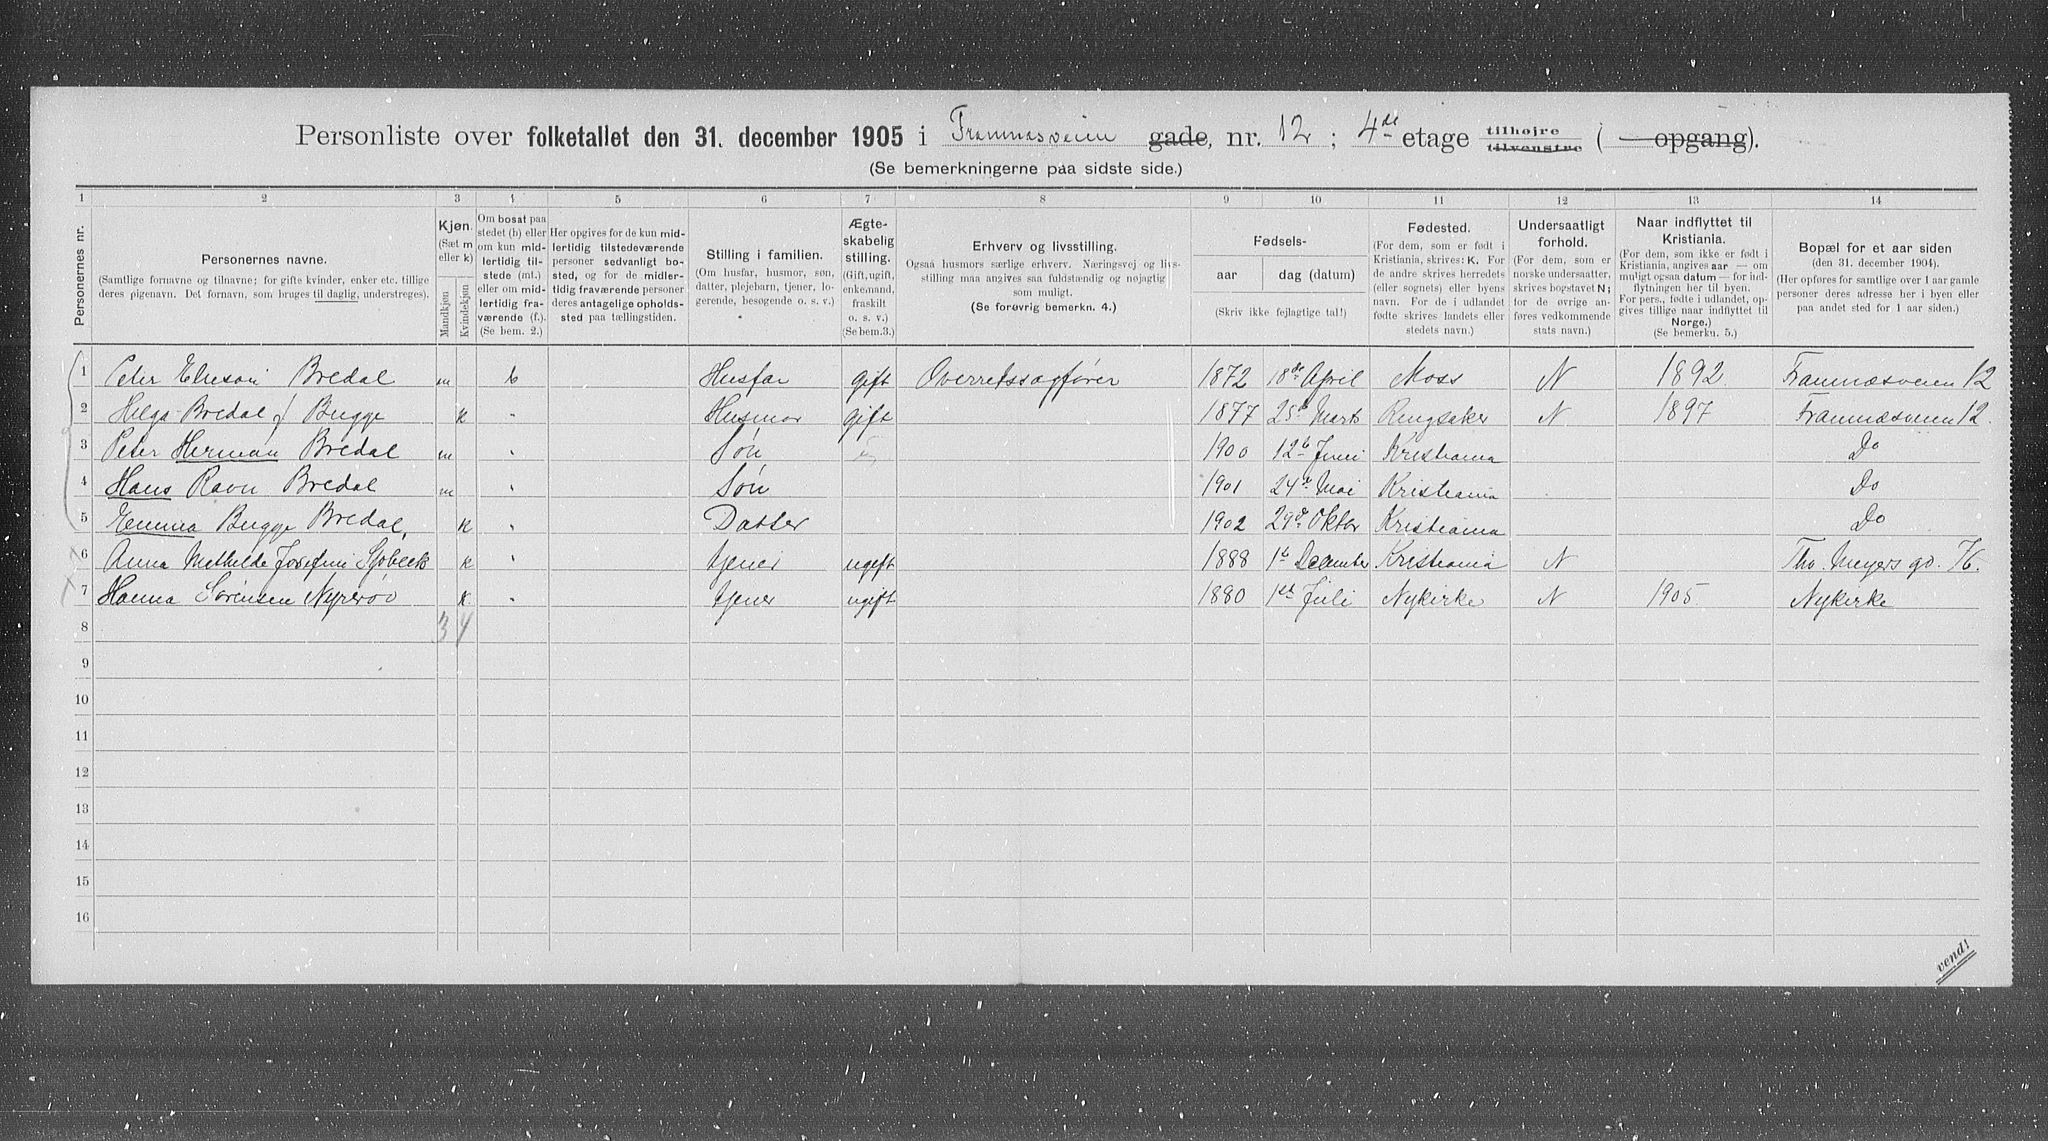 Personliste over folketallet den 31. december 1905 i Framnæsveien gade, nr. 12; 4de etage tilhøjre tilvenstre ( — opgang).
(Se bemerkningerne paa sidste side.)
1 2 3 4 5 6 7 8 9 10 11 12 13 14
Personernes nr.
Personernes navne.
(Samtlige fornavne og tilnavne; for gifte kvinder, enker etc. tillige deres pigenavn. Det fornavn, som bruges til daglig, understreges).
Kjøn.
(Sæt m eller k)
Mandkjøn
Kvindekjøn
Om bosat paa stedet (b) eller om kun midlertidig tilstede (mt.) eller om midlertidig fraværende (f.). (Se bem. 2.)
Her opgives for de kun midlertidig tilstedeværende personer sedvanligt bosted, og for de midlertidig fraværende deres antagelige opholdssted paa tællingstiden.
Stilling i familien.
(Om husfar, husmor, søn, datter, plejebarn, tjener, logerende, besøgende o. s. v.)
Ægteskabelig stilling.
(Gift, ugift, enkemand, fraskilt o. s. v.) (Se bem.3.)
Erhverv og livsstilling.
Ogsaa husmors særlige erhverv. Næringsvej og livsstilling maa angives saa fuldstændig og nøjagtig som muligt.
(Se forøvrig bemerkn. 4.)
Fødsels-
aar
dag (datum)
(Skriv ikke fejlagtige tal!)
Fødested.
(For dem, som er født i Kristiania, skrives: K. For de andre skrives herredets (eller sognets) eller byens navn. For de i udlandet fødte skrives landets eller stedets navn.)
Undersaatligt forhold.
(For dem, som er norske undersaatter, skrives bogstavet N; for de øvrige anføres vedkommende stats navn.)
Naar indflyttet til Kristiania.
(For dem, som ikke er født i Kristiania, angives aar — om muligt ogsaa datum — for indflytningen her til byen. For pers., fødte i udlandet, opgives tillige naar indflyttet til Norge.)
(Se bemerkn. 5.)
Bopæl for et aar siden
(den 31. december 1904).
(Her opføres for samtlige over 1 aar gamle personer deres adresse her i byen eller paa andet sted for 1 aar siden.)
1 Peter Elieson Bredal m b Husfar gift Overretssagfører 1872 18de April Moss N 1892 Framnæsveien 12
2 Helga Bredal f Bugge k " Husmor gift 1877 25de Marts Ringsaker N 1897 Framnæsveien 12.
3 Peter Herman Bredal m " Søn 1900 12te Juni Kristiania Do
4 Hans Ravn Bredal m " Søn 1901 24de Mai Kristiania Do
5 Emma Bugge Bredal, k " Datter 1902 29de Oktbr Kristiania Do
6 Anna Mathilde Josefine Sjöbeck k " tjener ugift 1888 1ste December Kristiania N Th. Meyers gd. 76.
7 Hanna Sørensen Nyrerød k. " tjener ugift 1880 1ste Juli Nykirke N 1905. Nykirke
8 3 4
9
10
11
12
13
14
15
16
vend!